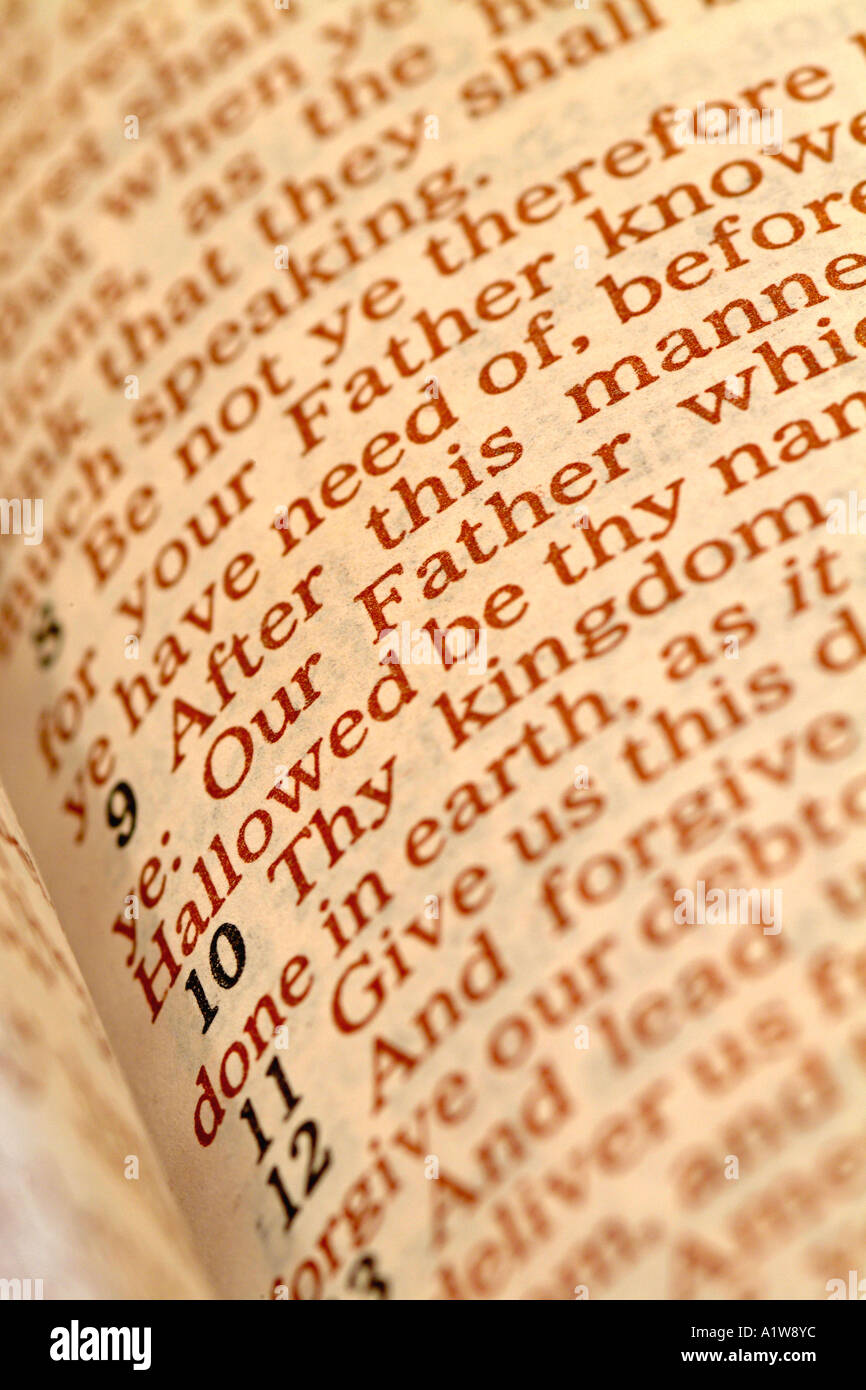 but when ye
as the
that they shall
much speaking.
8 Be not ye therefore
for your Father knowe
ye have need of, before
9 After this manne
ye: Our Father whic
Hallowed be thy nam
10 Thy kingdom
done in earth, as it
11 Give us this d
12 And forgive
forgive our debto
13 And lead u
deliver us f
and
alamy
Image ID: A1W8YC
www.alamy.com